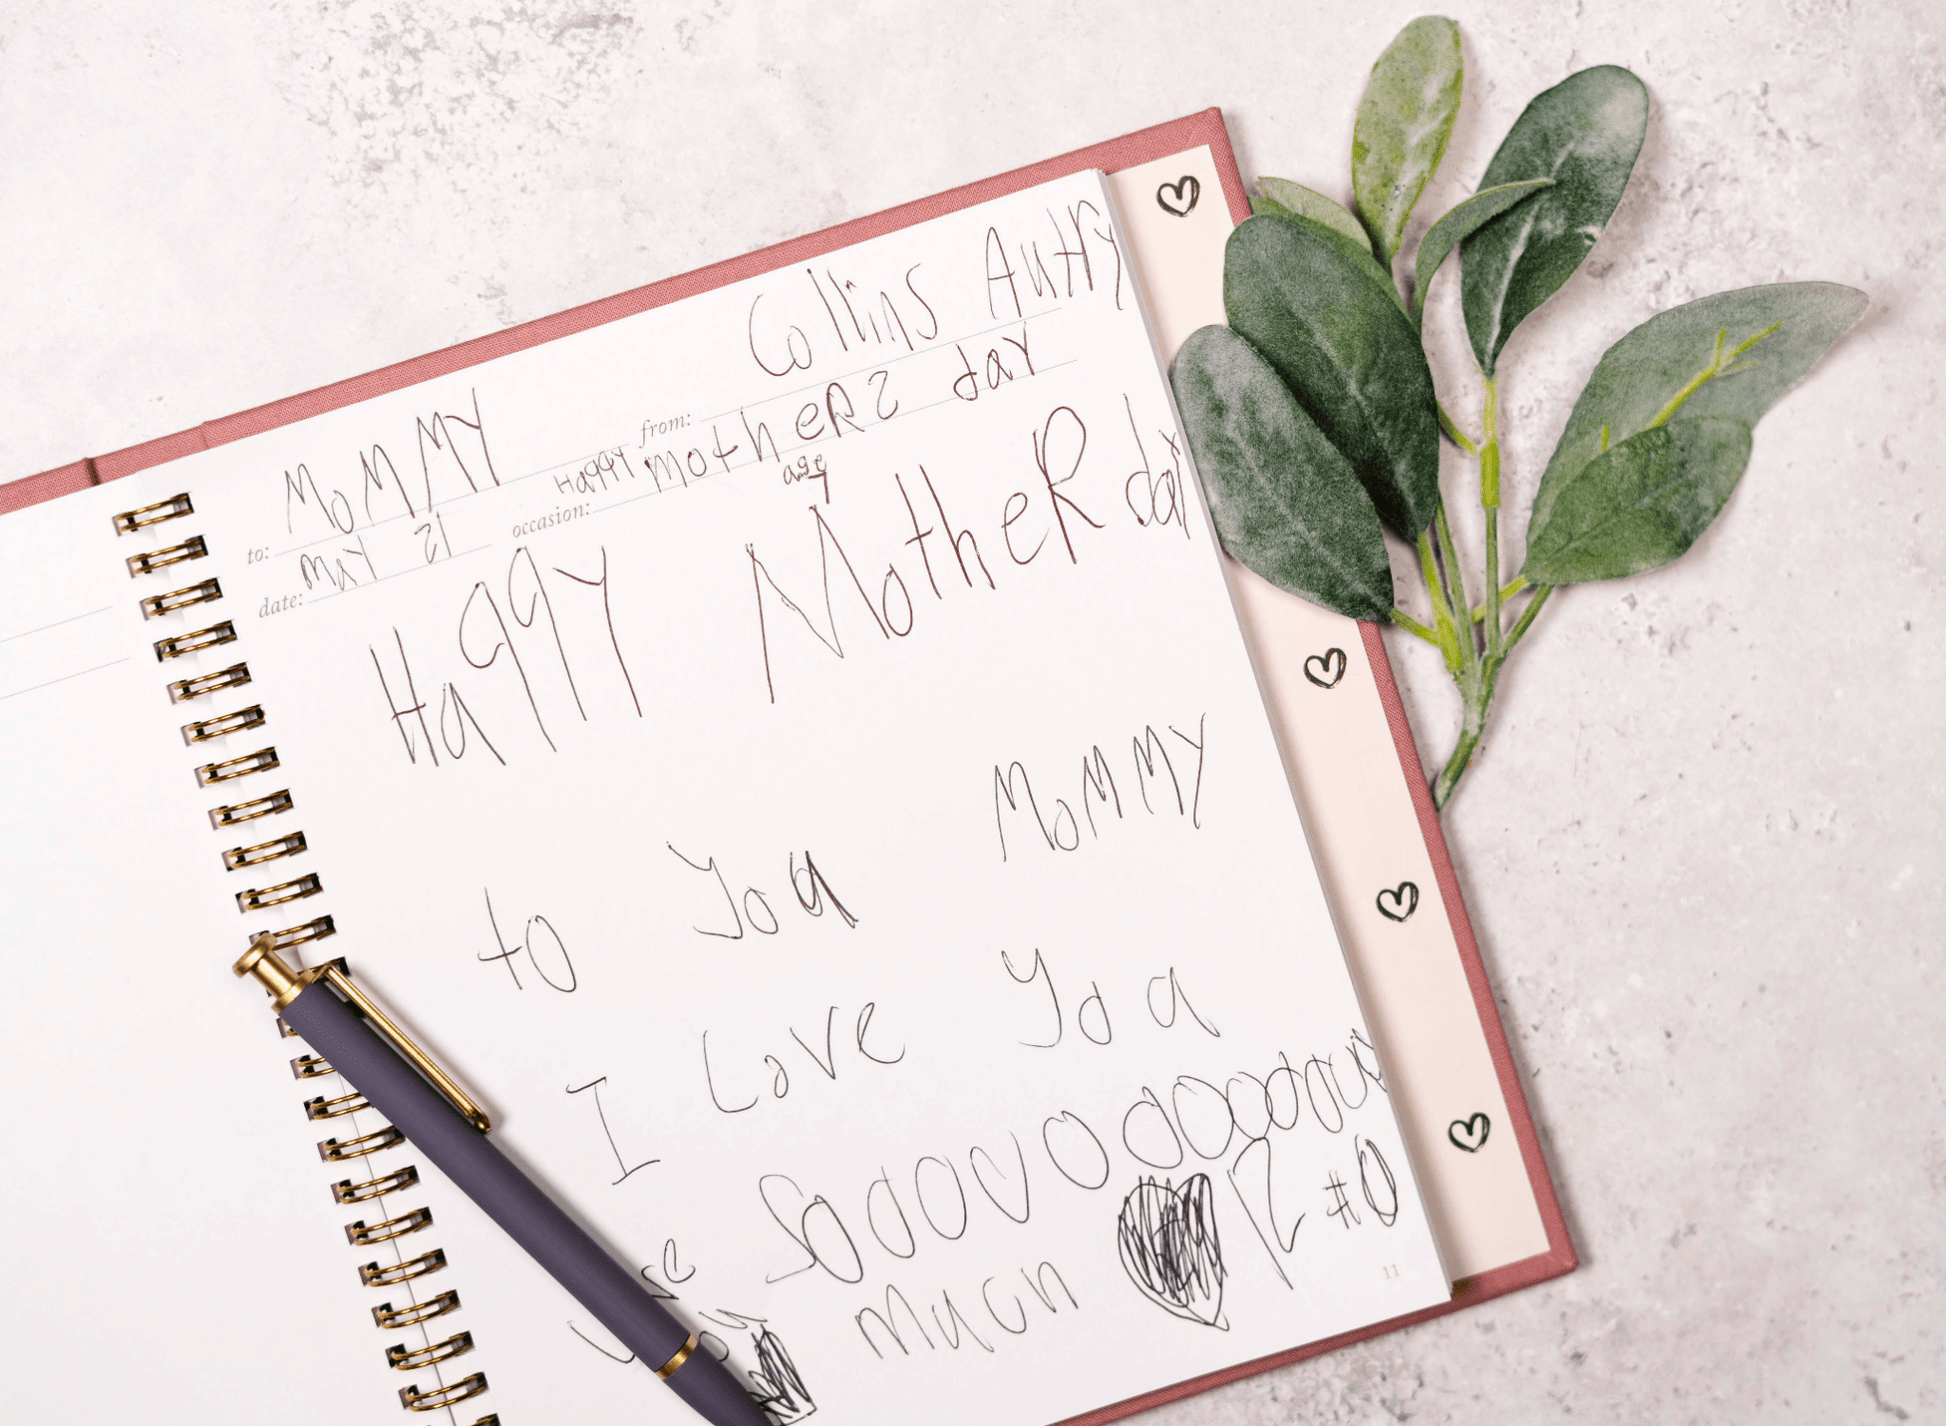 to: MoMMY from: Collins Autry
date: May 21 occasion: Happy motheRs day
age 7
Happy MotheR day
to You MoMMY
I Love You
Sooooooooooooo
much
#
11